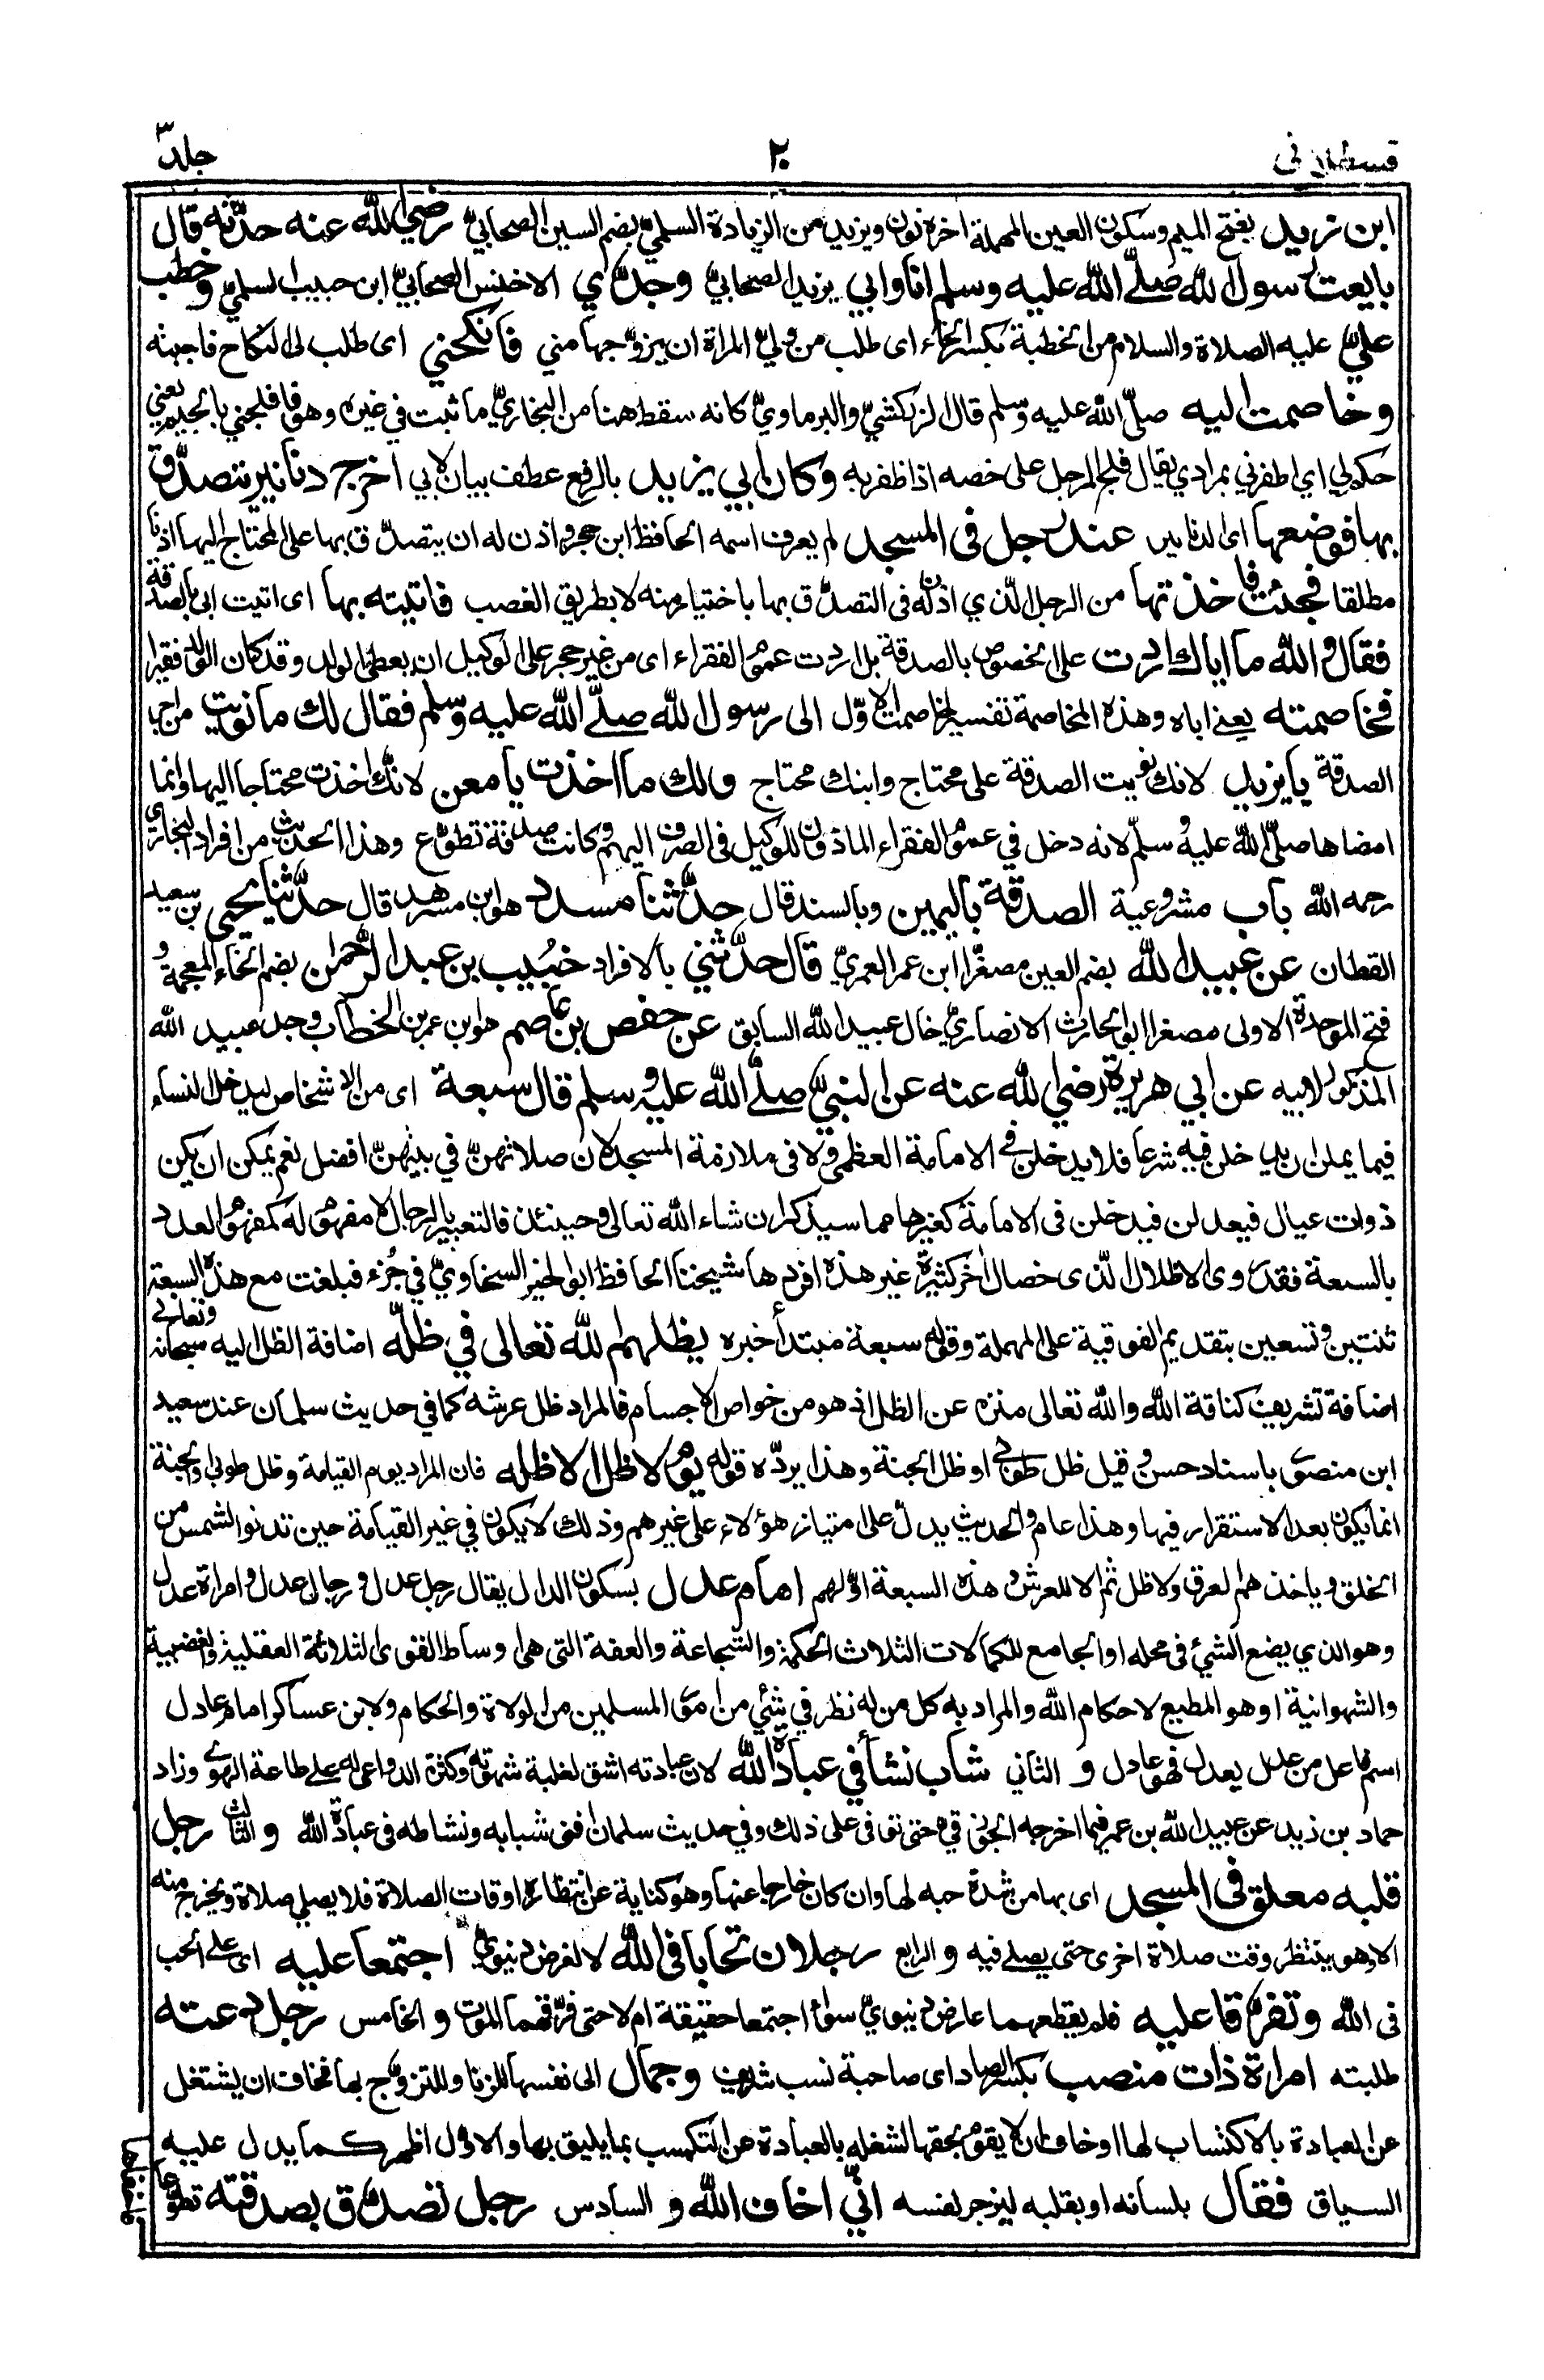 قسطلاني ٢٠ جلد ٣
ابن يزيد بفتح الميم وسكون العين المهملة اخره نون ويزيد من الزيادة السلمي بضم السين الصحابيّ رضي الله عنه حدّثه قال
بايعت رسول الله صلّى الله عليه وسلم انا وابي يزيد الصحابيّ وجدّي الاخنس الصحابيّ ابن حبيب السلميّ وخطب
عليّ عليه الصلاة والسلام من الخطبة بكسر الخاء اى طلب من وليّ المراة ان يزوّجها مني فانكحني اى طلب لى النكاح فاجبته
وخاصمت اليه صلّى الله عليه وسلم قال الزركشيّ والبرماويّ كانه سقط هنا من البخاريّ ما ثبت في غيره وهو فافلجني بالجيم يعني
حكم لي اي اظفرني بمرادي يقال فلج الرجل على خصمه اذا ظفر به وكان ابي يزيد بالرفع عطف بيان لابي اخرج دنانير يتصدّق
بها فوضعها اى الدنانير عند رجل في المسجد لم يعرف اسمه الحافظ ابن حجر واذن له ان يتصدّق بها على المحتاج اليها اذنا
مطلقا فجئت فاخذتها من الرجل الذي اذن له فى التصدّق بها باختيار منه لا بطريق الغصب فاتيته بها اى اتيت ابى بالصدقة
فقال والله ما اياك اردت على الخصوص بالصدقة بل اردت عموم الفقراء اى من غير حجر على الوكيل ان يعطى الولد وقد كان الولد فقيرا
فخاصمته يعني اباه وهذه المخاصمة تفسير لخاصمت الاوّل الى رسول الله صلّى الله عليه وسلم فقال لك ما نويت من اجر
الصدقة يا يزيد لانك نويت الصدقة على محتاج وابنك محتاج ولك ما اخذت يا معن لانّك اخذت محتاجا اليها وانما
امضاها صلّى الله عليه وسلّم لانه دخل في عموم الفقراء الماذون للوكيل فى الصرف اليهم وكانت صدقة تطوّع وهذا الحديث من افراد البخاري
رحمه الله باب مشروعية الصدقة باليمين وبالسند قال حدّثنا مسدد هو ابن مسرهد قال حدّثنا يحيى بن سعيد
القطان عن عبيد الله بضم العين مصغّرا ابن عمر العمريّ قال حدّثني بالافراد خبيب بن عبد الرّحمن بضم الخاء المعجمة و
فتح الموحدة الاولى مصغرا ابو الحارث الانصاريّ خال عبيد الله السابق عن حفص بن عاصم هو ابن عمر بن الخطاب وجد عبيد الله
المذكور لابيه عن ابي هريرة رضي الله عنه عن النبيّ صلّى الله عليه وسلم قال سبعة اى من الاشخاص ليدخل النساء
فيما يمكن ان يدخلن فيه شرعا فلا يدخلن في الامامة العظمى ولا فى ملازمة المسجد لان صلاتهنّ في بيتهنّ افضل نعم يمكن ان يكن
ذوات عيال فيعدلن فيدخلن فى الامامة كغيرها مما سيذكر ان شاء الله تعالى وحينئذ فالتعبير بالرجال لا مفهوم له كمفهوم العدد
بالسبعة فقد روى الاظلال لذى خصال اخر كثيرة غير هذه افردها شيخنا الحافظ ابو الخير السخاويّ في جُزء فبلغت مع هذه السبعة
ثنتين وتسعين بتقديم الفوقية على المهملة وقوله سبعة مبتدأ خبره يظلهم الله تعالى في ظلّه اضافة الظل اليه سبحانه وتعالى
اضافة تشريف كناقة الله والله تعالى منزه عن الظل اذ هو من خواص الاجسام فالمراد ظل عرشه كما في حديث سلمان عند سعيد
ابن منصور باسناد حسن وقيل ظل طوبى او ظل الجنة وهذا يردّه قوله يوم لا ظل الا ظله فان المراد يوم القيامة وظل طوبى او الجنة
انما يكون بعد الاستقرار فيها وهذا عام والحديث يدل على امتياز هؤلاء على غيرهم وذلك لا يكون في غير القيامة حين تدنو الشمس من
الخلق وياخذهم العرق ولا ظل ثم الا للعرش وهذه السبعة اوّلهم امام عدل بسكون الدال يقال رجل عدل ورجال عدل وامراة عدل
وهو الذي يضع الشيء في محله او الجامع للكمالات الثلاث الحكمة والشجاعة والعفة التى هى اوساط القوى الثلاثة العقلية والغضبية
والشهوانية او هو المطيع لاحكام الله والمراد به كل من له نظر في شيء من امور المسلمين من الولاة والحكام ولابن عساكر امام عادل
اسم فاعل من عدل يعدل فهو عادل و الثاني شاب نشأ في عبادة الله لان عبادته اشق لغلبة شهوته وكثرة الدواعى له على طاعة الهوى وزاد
حماد بن زيد عن عبيد الله بن عمر فيما اخرجه الجوزقي حتى توفى على ذلك وفي حديث سلمان افنى شبابه ونشاطه فى عبادة الله و الثالث رجل
قلبه معلق فى المسجد اى بها من شدة حبه لها وان كان خارجا عنها وهو كناية عن انتظاره اوقات الصلاة فلا يصلي صلاة ويخرج منه
الا وهو ينتظر وقت صلاة اخرى حتى يصلى فيه و الرابع رجلان تحابا فى الله لا لغرض دنيويّ اجتمعا عليه اى على الحب
فى الله وتفرّقا عليه فلم يقطعهما عارض دنيويّ سواء اجتمعا حقيقة ام لا حتى فرّق بينهما الموت و الخامس رجل دعته
طلبته امراة ذات منصب بكسر الصاد اى صاحبة نسب شريف وجمال الى نفسها للزنا او للتزوّج بها فخاف ان يشتغل
عن العبادة بالاكتساب لها او خاف ان لا يقوم بحقها لشغله بالعبادة عن التكسب بما يليق بها والاوّل اظهر كما يدل عليه
السياق فقال بلسانه او بقلبه ليزجر نفسه انّي اخاف الله و السادس رجل تصدّق بصدقة تطوّعا